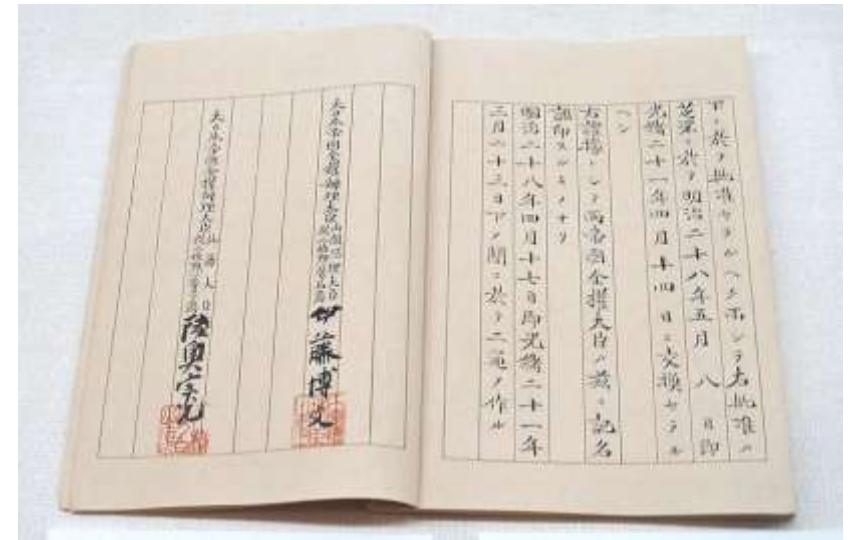 下ニ於テ批准セラルヘク而シテ右批准ハ
芝罘ニ於テ明治二十八年五月八日即
光緒二十一年四月十四日ニ交換セラル
ヘシ
右證據トシテ兩帝國全權大臣ハ茲ニ記名
調印スルモノナリ
明治二十八年四月十七日即光緒二十一年
三月二十三日下ノ關ニ於テ二通ヲ作ル
大日本帝國全權辦理大臣內閣總理大臣從二位勳一等伯爵伊藤博文
大日本帝國全權辦理大臣外務大臣從二位勳一等子爵陸奥宗光